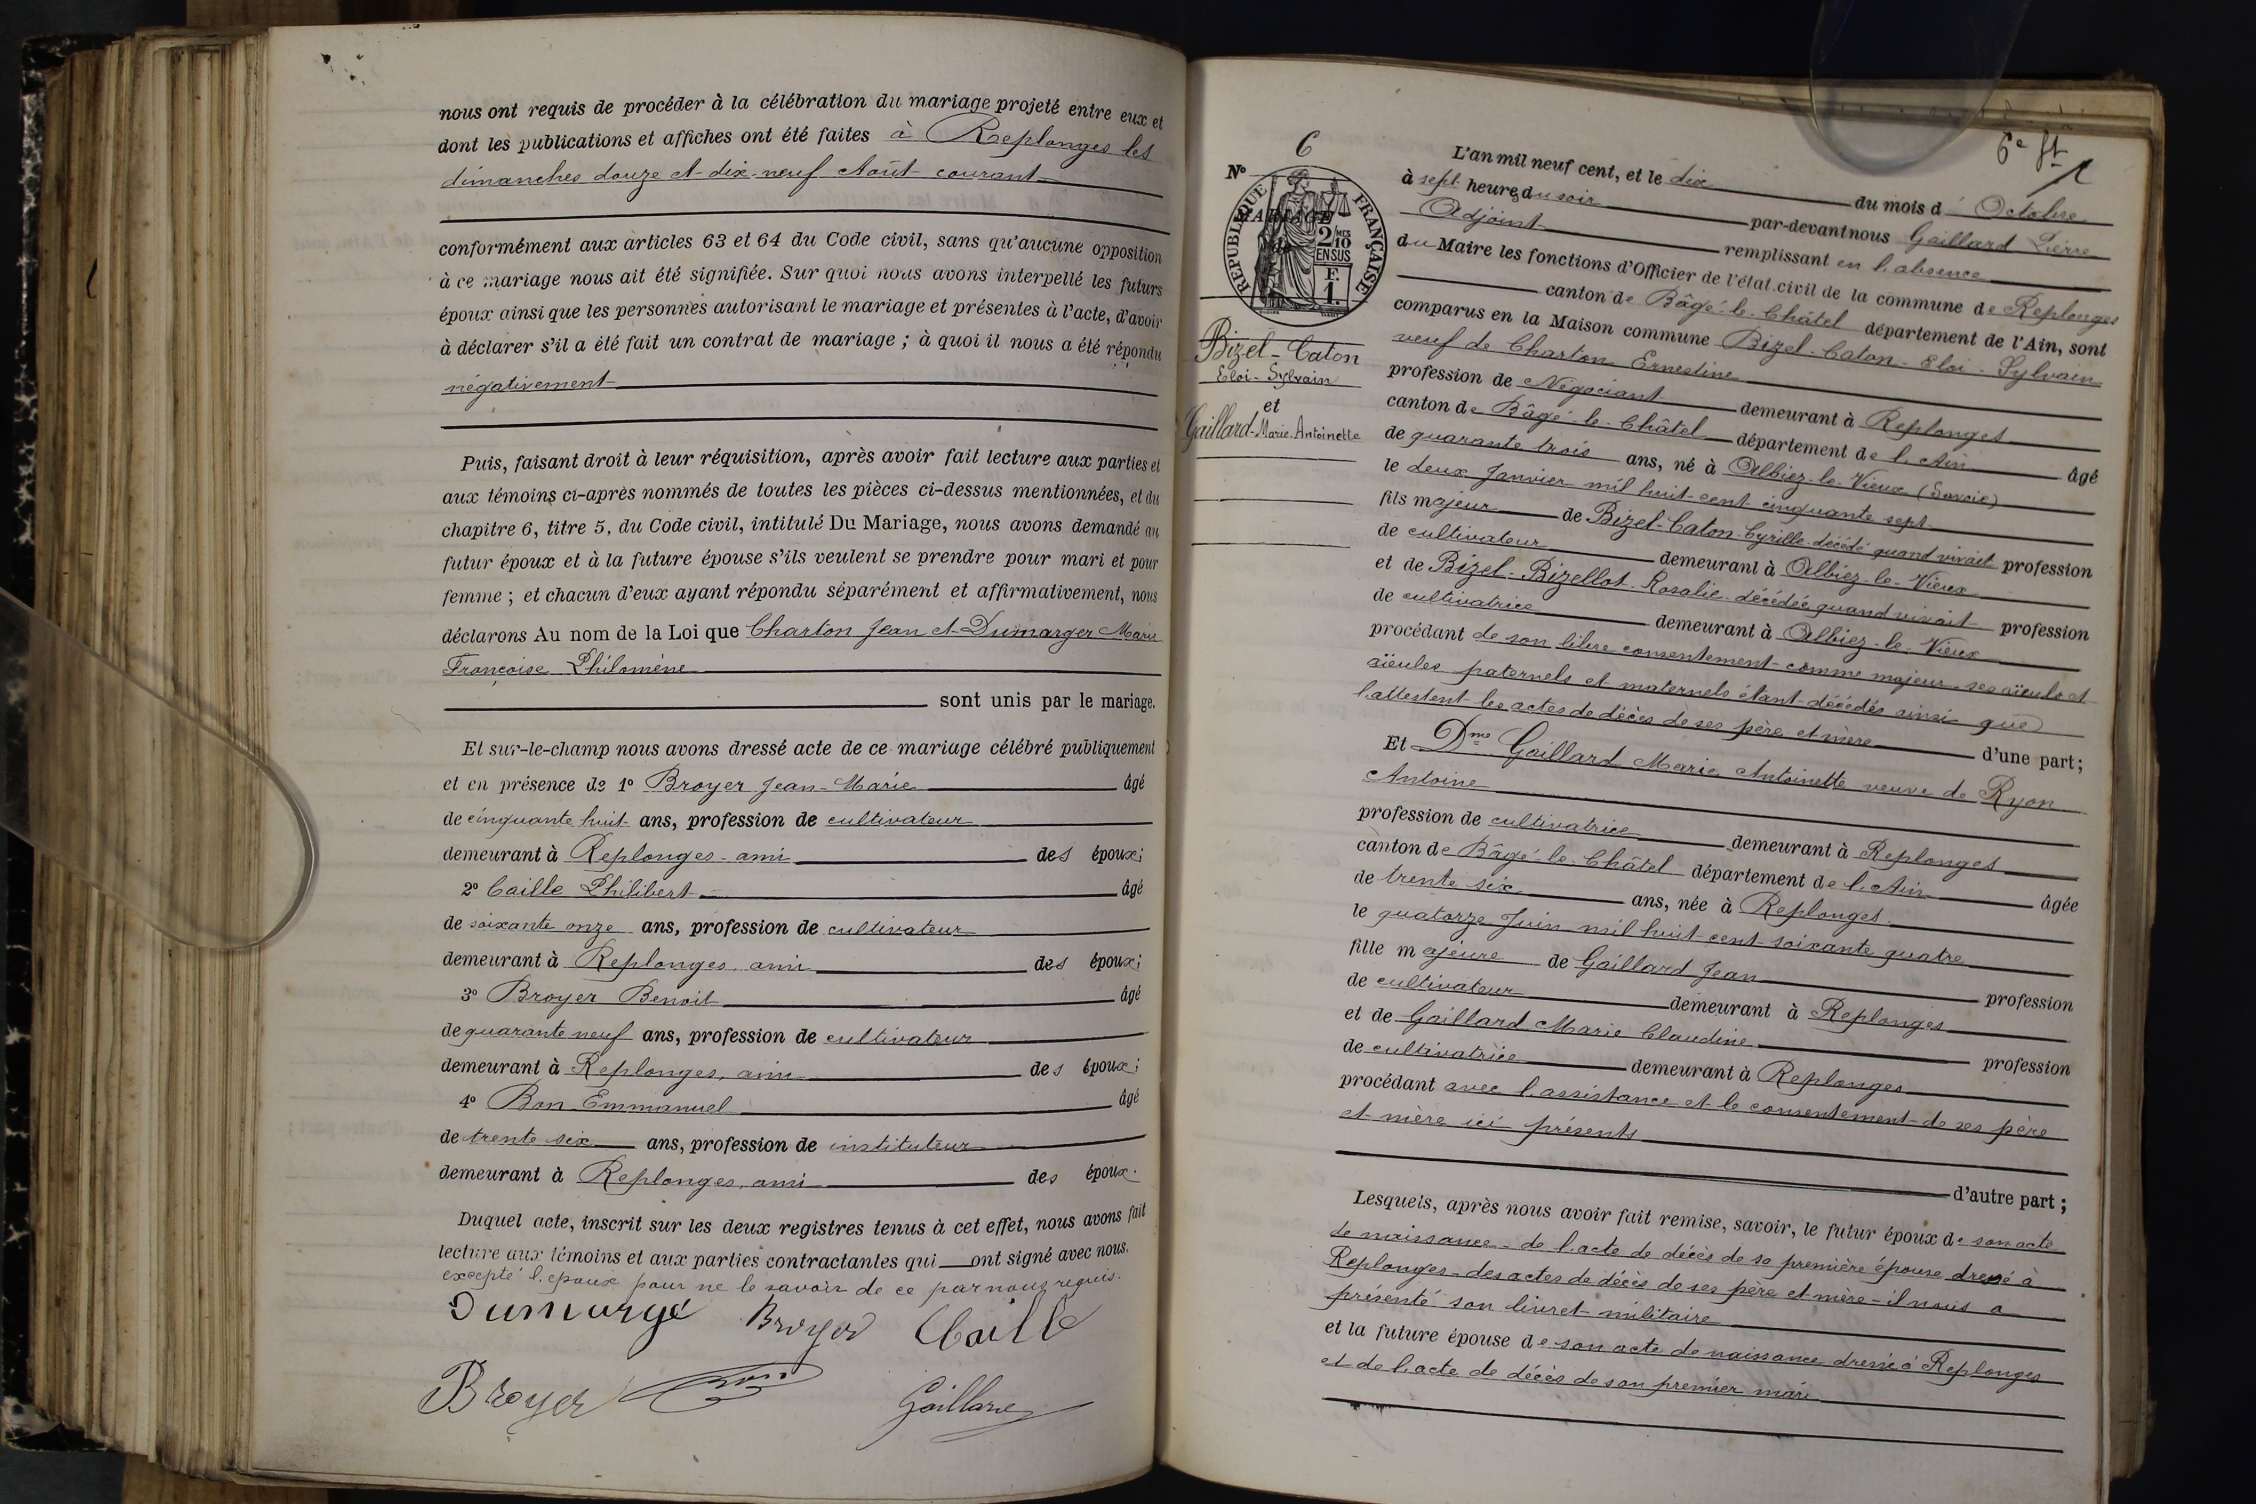 nous ont requis de procéder à la célébration du mariage projeté entre eux et
dont les publications et affiches ont été faites à Replonges les
dimanches douze et dix-neuf Août courant
conformément aux articles 63 et 64 du Code civil, sans qu'aucune opposition
à ce mariage nous ait été signifiée. Sur quoi nous avons interpellé les futurs
époux ainsi que les personnes autorisant le mariage et présentes à l'acte, d'avoir
à déclarer s'il a été fait un contrat de mariage ; à quoi il nous a été répondu
négativement
Puis, faisant droit à leur réquisition, après avoir fait lecture aux parties et
aux témoins ci-après nommés de toutes les pièces ci-dessus mentionnées, et du
chapitre 6, titre 5, du Code civil, intitulé Du Mariage, nous avons demandé au
futur époux et à la future épouse s'ils veulent se prendre pour mari et pour
femme ; et chacun d'eux ayant répondu séparément et affirmativement, nous
déclarons Au nom de la Loi que Charton Jean et Dumarger Marie
Françoise Philomène
sont unis par le mariage.
Et sur-le-champ nous avons dressé acte de ce mariage célébré publiquement
et en présence de 1° Broyer Jean-Marie âgé
de cinquante huit ans, profession de cultivateur
demeurant à Replonges ami des époux ;
2° Caille Philibert âgé
de soixante onze ans, profession de cultivateur
demeurant à Replonges, ami des époux ;
3° Broyer Benoit âgé
de quarante neuf ans, profession de cultivateur
demeurant à Replonges, ami des époux ;
4° Bon Emmanuel âgé
de trente six ans, profession de instituteur
demeurant à Replonges, ami des époux.
Duquel acte, inscrit sur les deux registres tenus à cet effet, nous avons fait
lecture aux témoins et aux parties contractantes qui ont signé avec nous.
excepté l'époux pour ne le savoir de ce par nous requis.
Dumarge Broyer Caille
Broyer Gaillard
6e ft
6
N°
MARIAGE
de
RÉPUBLIQUE FRANÇAISE
2/10 MES
EN SUS
F.
1.
Bizel-Caton
Eloi-Sylvain
et
Gaillard-Marie-Antoinette
L'an mil neuf cent, et le dix du mois d' Octobre
à sept heures du soir par-devant nous Gaillard Pierre
Adjoint remplissant en l'absence
du Maire les fonctions d'Officier de l'état civil de la commune de Replonges
canton de Bâgé-le-Châtel département de l'Ain, sont
comparus en la Maison commune Bizel-Caton-Eloi-Sylvain
veuf de Charton Ernestine
profession de Négociant demeurant à Replonges
canton de Bâgé-le-Châtel département de l'Ain âgé
de quarante trois ans, né à Albiez-le-Vieux (Savoie)
le deux Janvier mil huit-cent cinquante sept
fils majeur de Bizel-Caton-Cyrille décédé quand vivait profession
de cultivateur demeurant à Albiez-le-Vieux
et de Bizel-Bizellot-Rosalie décédée quand vivait profession
de cultivatrice demeurant à Albiez-le-Vieux
procédant de son libre consentement comme majeur, ses aïeuls et
aïeules paternels et maternels étant décédés ainsi que
l'attestent les actes de décès de ses père et mère d'une part ;
Et Dme Gaillard Marie Antoinette veuve de Ryon
Antoine
profession de cultivatrice demeurant à Replonges
canton de Bâgé-le-Châtel département de l'Ain âgée
de trente six ans, née à Replonges
le quatorze Juin mil huit cent soixante quatre
fille majeure de Gaillard Jean profession
de cultivateur demeurant à Replonges
et de Gaillard Marie Claudine profession
de cultivatrice demeurant à Replonges
procédant avec l'assistance et le consentement de ses père
et mère ici présents
d'autre part ;
Lesquels, après nous avoir fait remise, savoir, le futur époux de son acte
de naissance – de l'acte de décès de sa première épouse dressé à
Replonges – des actes de décès de ses père et mère – il nous a
présenté son livret militaire
et la future épouse de son acte de naissance dressé à Replonges
et de l'acte de décès de son premier mari